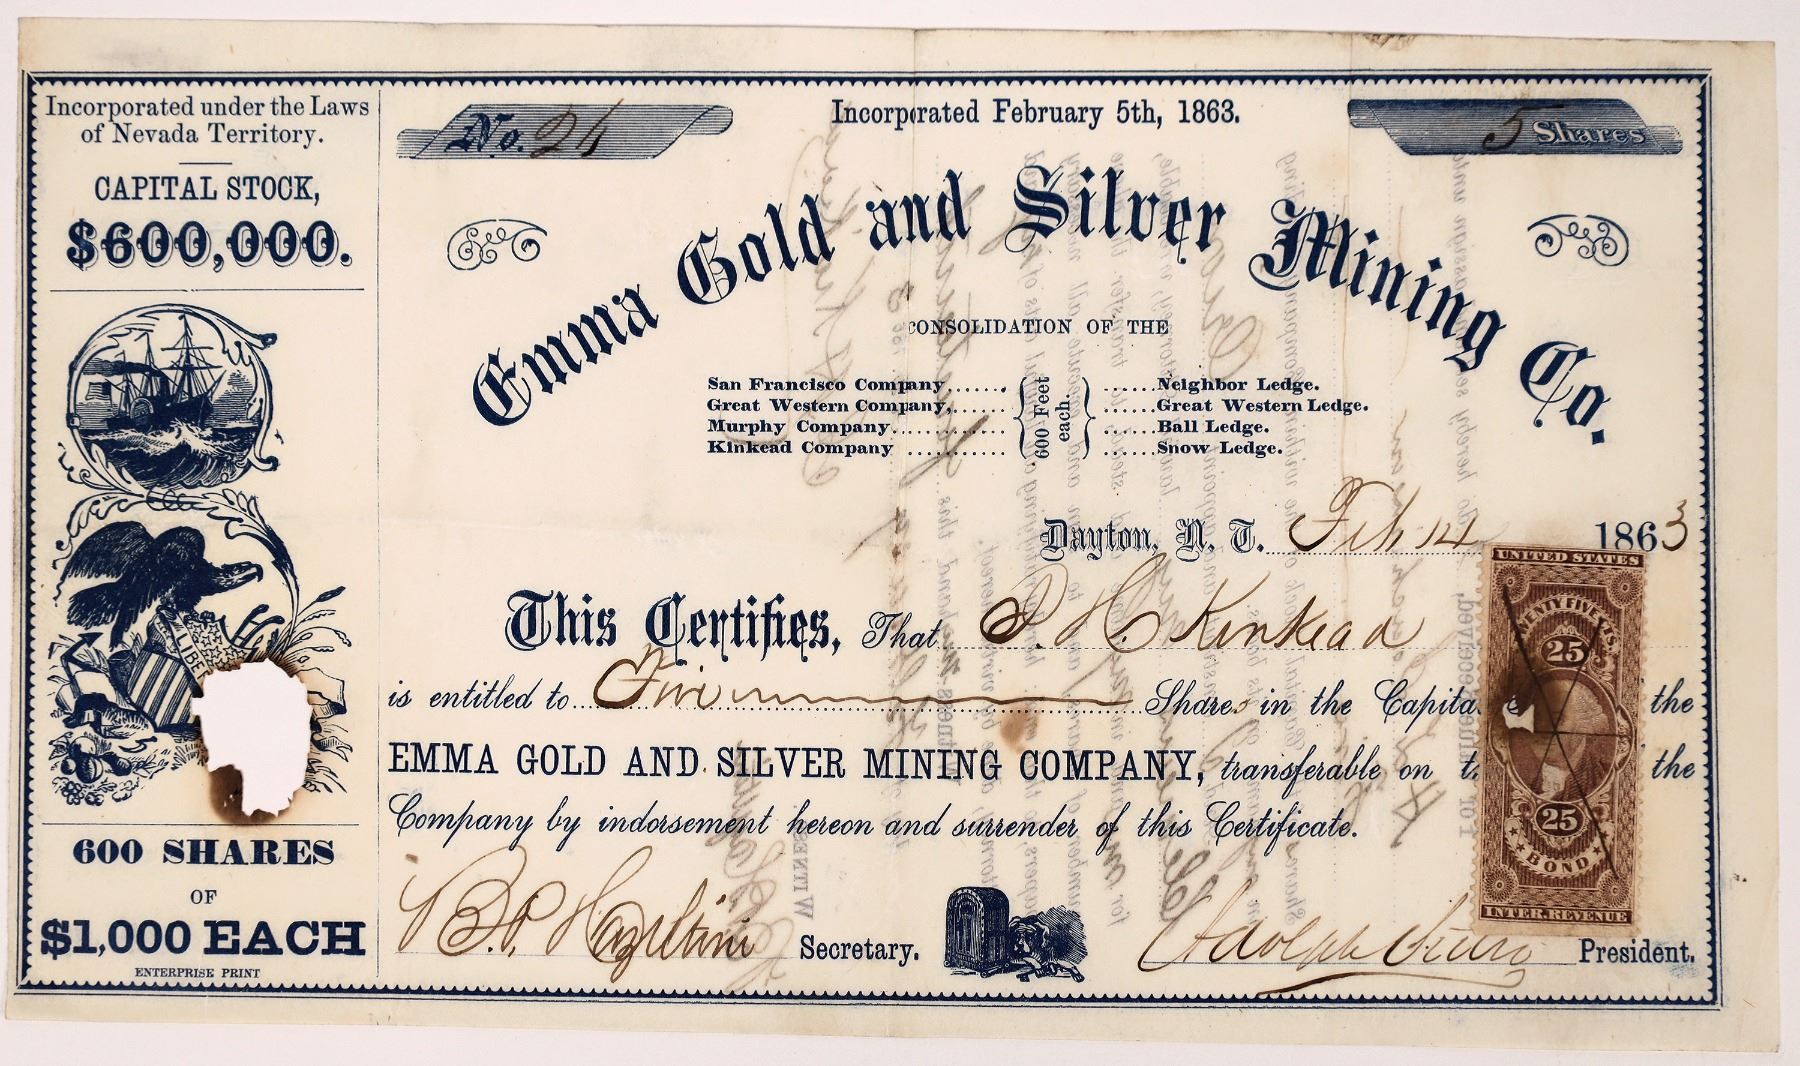 Incorporated under the Laws
of Nevada Territory.
CAPITAL STOCK,
$600,000.
LIBE
600 SHARES
OF
$1,000 EACH
ENTERPRISE PRINT
No. 24
Incorporated February 5th, 1863.
5 Shares
Emma Gold and Silver Mining Co.
CONSOLIDATION OF THE
San Francisco Company....... 600 Feet each. ......Neighbor Ledge.
Great Western Company,...... ......Great Western Ledge.
Murphy Company............ ......Ball Ledge.
Kinkead Company .......... ......Snow Ledge.
Dayton, N. T. Feb 14 1863
This Certifies, That J. H. Kinkead
is entitled to Five Shares in the Capita the
EMMA GOLD AND SILVER MINING COMPANY, transferable on t the
Company by indorsement hereon and surrender of this Certificate.
Secretary.
President.
UNITED STATES
TWENTY FIVE CTS.
25
25
BOND
INTER. REVENUE